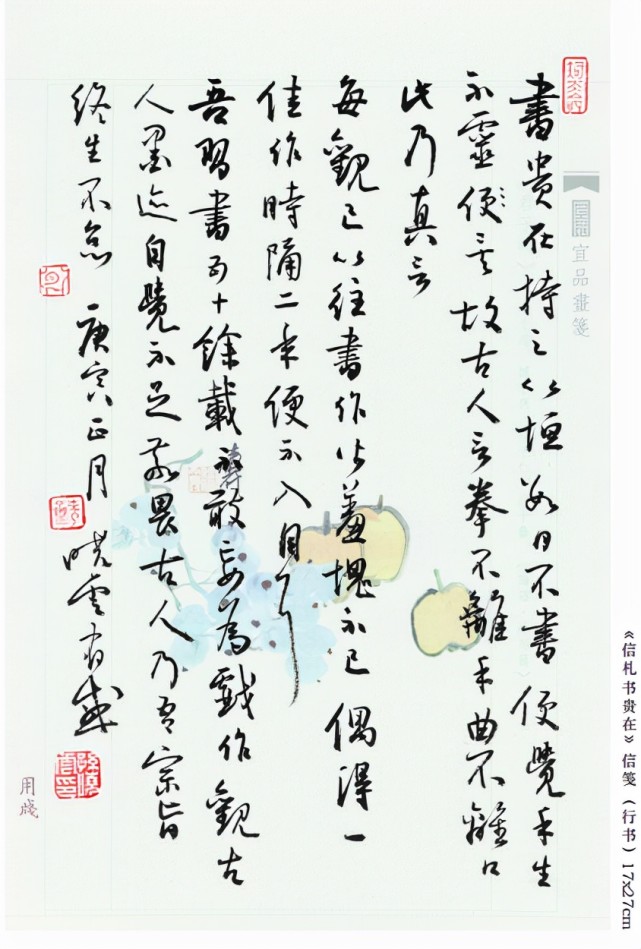 書貴在持之以恒數日不書便覺手生
不靈便言故古人言拳不離手曲不離口
此乃真言
每觀己以往書作皆羞愧不已偶得一
佳作時隔二年便不入目了
吾習書五十餘載不敢妄為戲作觀古
人墨迹自覺不足敬畏古人乃吾宗旨
終生不怠 庚寅正月 曉雲有感
宜品畫箋
用牋
《信札书贵在》信笺(行书)17x27cm